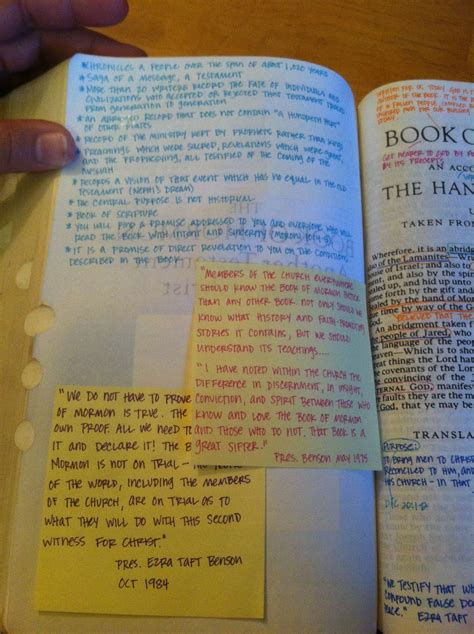 *CHRONICLES A PEOPLE OVER THE SPAN OF ABOUT 1,020 YEARS
*SAGA OF A MESSAGE, A TESTAMENT
*MORE THAN 20 WRITERS RECORD THE FATE OF INDIVIDUALS AND
CIVILIZATIONS WHO ACCEPTED OR REJECTED THAT TESTAMENT
FROM GENERATION TO GENERATION
*AN ABRIDGED RECORD THAT DOES NOT CONTAIN "A HUNDREDTH PART"
OF OTHER PLATES
*RECORD OF THE MINISTRY KEPT BY PROPHETS RATHER THAN KINGS
PREACHINGS WHICH WERE SACRED, REVELATIONS WHICH WERE GREAT,
AND THE PROPHESYING, ALL TESTIFIED OF THE COMING OF THE
MESSIAH
*RECORDS A VISION OF THAT EVENT WHICH HAS NO EQUAL IN THE OLD
TESTAMENT (NEPHI'S DREAM)
*THE CENTRAL PURPOSE IS NOT HISTORICAL
*BOOK OF SCRIPTURE
*YOU WILL FIND A PROMISE ADDRESSED TO YOU AND EVERYONE WHO WILL
READ THE BOOK WITH INTENT AND SINCERITY (MORONI
*IT IS A PROMISE OF DIRECT REVELATION TO YOU ON THE CONDITIONS
DESCRIBED IN THE BOOK
"MEMBERS OF THE CHURCH EVERYWHERE
SHOULD KNOW THE BOOK OF MORMON BETTER
THAN ANY OTHER BOOK. NOT ONLY SHOULD WE
KNOW WHAT HISTORY AND FAITH-PROMOTING
STORIES IT CONTAINS, BUT WE SHOULD
UNDERSTAND ITS TEACHINGS....
"I HAVE NOTED WITHIN THE CHURCH THE
DIFFERENCE IN DISCERNMENT, IN INSIGHT,
CONVICTION, AND SPIRIT BETWEEN THOSE WHO
KNOW AND LOVE THE BOOK OF MORMON
AND THOSE WHO DO NOT. THAT BOOK IS A
GREAT SIFTER."
PRES. BENSON MAY 1975
"WE DO NOT HAVE TO PROVE
OF MORMON IS TRUE. THE
OWN PROOF. ALL WE NEED TO
IT AND DECLARE IT! THE B
MORMON IS NOT ON TRIAL - THE
OF THE WORLD, INCLUDING THE MEMBERS
OF THE CHURCH, ARE ON TRIAL AS TO
WHAT THEY WILL DO WITH THIS SECOND
WITNESS FOR CHRIST."
PRES. EZRA TAFT BENSON
OCT 1984
BOOK O
GET NEARER TO GOD BY
BY ITS PRECEPTS
AN ACC
THE HAN
TAKEN FROM
Wherefore, it is an abridg
of the Lamanites—Writ
house of Israel; and also to
by way of commandment, an
sealed up, and hid up unto
forth by the gift and
sealed by the hand of Mor
time by way of the
BELIEVED THAT THE
An abridgment taken f
the people of Jared, who
the language of the peop
heaven—Which is to sh
the covenants of the Lord
the convincing of the
ETERNAL GOD, manifest
faults they are the m
that ye may be
TRANSLA
PURPOSE:
TO BRING MEN TO CHRIST
RECONCILED TO HIM, AND
HIS CHURCH - IN THAT
"WE TESTIFY THAT
CONFOUND FALSE DO
PEACE." EZRA TAFT